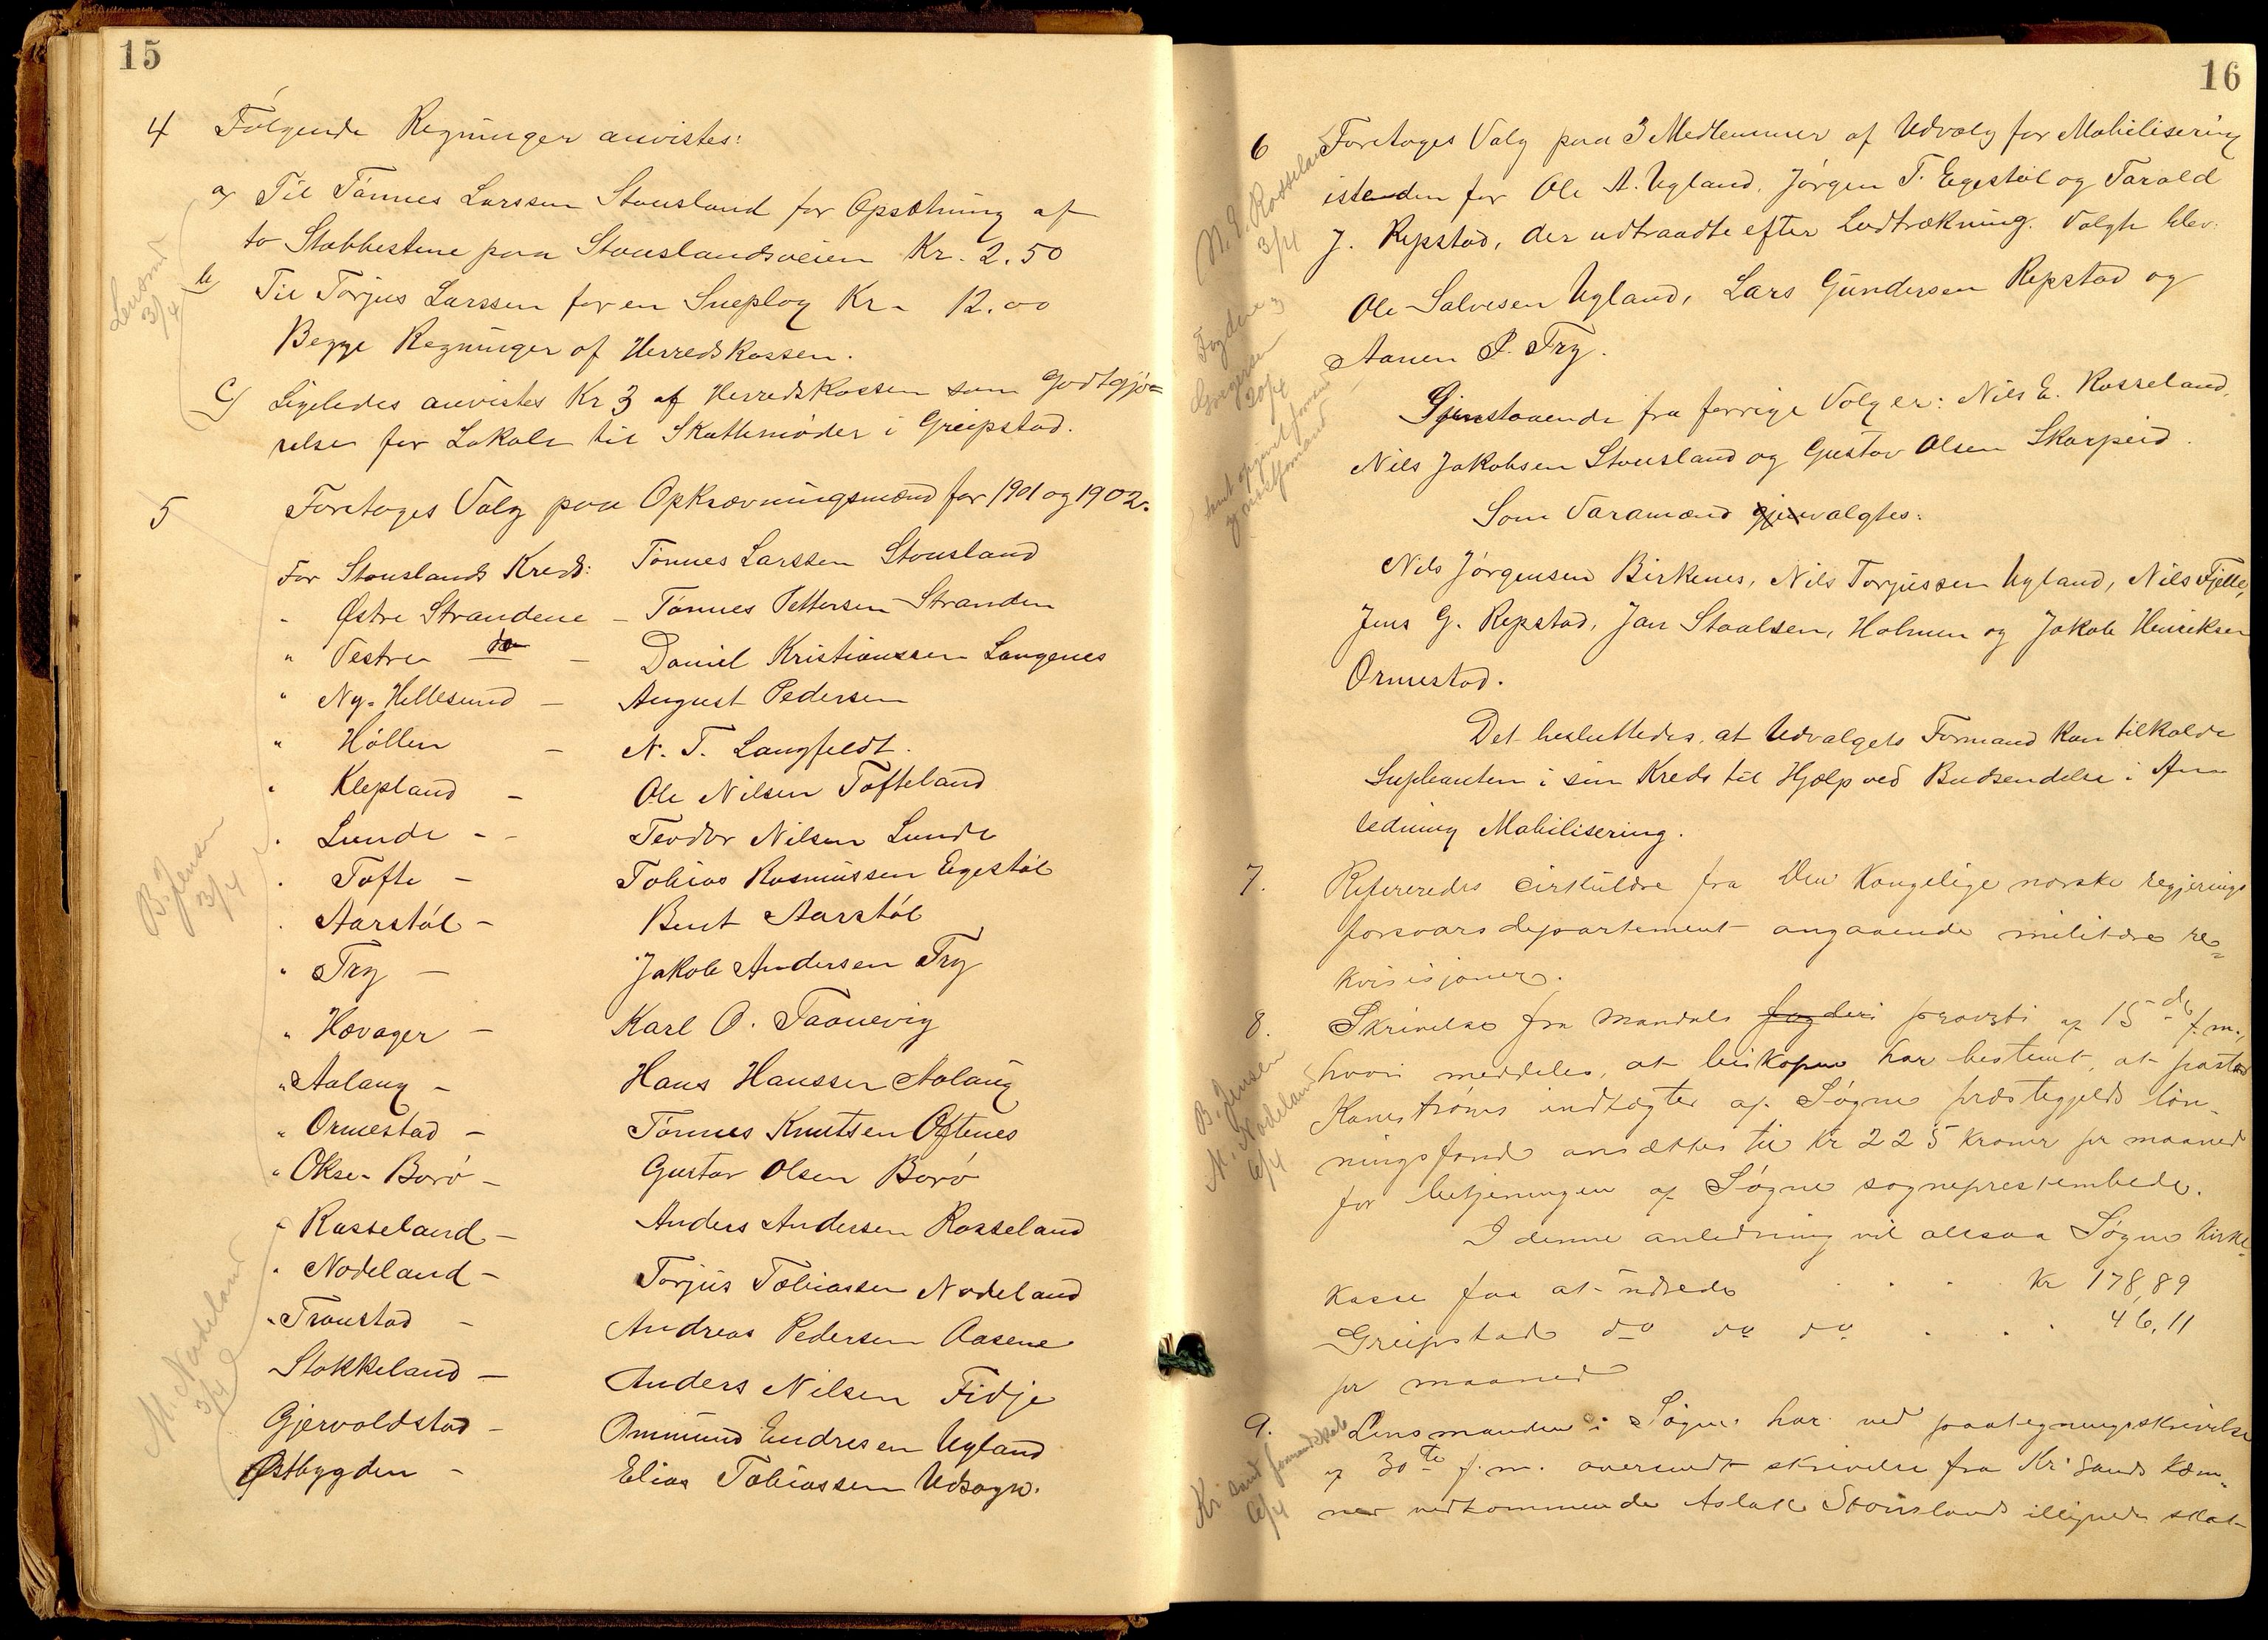 15
4 Følgende Regninger anvistes:
a) Til Tønnes Larssen Stousland for Opsætning af
to Stabbestene paa Stouslandsveien Kr. 2.50
b) Til Torjus Larssen for en Sneplog Kr - 12.00
Begge Regninger af Herredskassen.
c) Ligeledes anvistes Kr 3 af Herredskassen som Godtgjø=
relse for Lokale til Skattemøder i Greipstad.
Lensmd
3/4
5 Foretoges Valg paa Opkrævningsmænd for 1901 og 1902.
For Stouslands Kreds: Tønnes Larssen Stousland
" Østre Strandene - Tønnes Pettersen Stranden
" Vestre do - Daniel Kristianssen Langenes
" Ny-Hellesund - August Pedersen
" Høllen - N. T. Langfeldt.
" Klepland - Ole Nilsen Tofteland
" Lunde - - Teodor Nilsen Lunde
" Tofte - Tobias Rasmussen Egestøl
" Aarstøl - Bent Aarstøl
" Try - Jakob Andersen Try
" Hovager - Karl O. Taanevig
" Aalaug - Hans Hanssen Aalaug
" Ormestad - Tønnes Knutsen Oftenes
" Okse-Borø - Gustav Olsen Borø
" Rosseland - Anders Andersen Rosseland
" Nodeland - Torjus Tobiassen Nodeland
" Tronstad - Andreas Pedersen Aasene
Stokkeland - Anders Nilsen Fidje
Gjervoldstad - Ommund Endresen Ugland
Østbygden - Elias Tobiassen Udsogn.
B. Jensen
3/4
M. Nodeland
3/4
16
6 Foretoges Valg paa 3 Medlemmer af Udvalg for Mobilisering
istenden for Ole A. Ugland, Jørgen T. Egestøl og Tarald
J. Repstad, der udtraadte efter Lodtrækning. Valgte blev:
Ole Salvesen Ugland, Lars Gundersen Repstad og
Aanen P. Try.
Gjenstaaende fra forrige Valg er: Nils E. Rosseland,
Nils Jakobsen Stousland og Gustav Olsen Skarpeid.
Som Varamænd gjenvalgtes:
Nils Jørgensen Birkenes, Nils Torjussen Ugland, Nils Fjelle,
Jens G. Repstad, Jan Staalsen, Holmen og Jakob Henriksen
Ormestad.
Det besluttedes, at Udvalgets Formand kan tilkalde
Supleanten i sin Kreds til Hjælp ved Budsendelse i An-
ledning Mobilisering.
N. E. Rosseland
3/4
Fogden 3
20/4
7. Refereredes cirkulære fra Den Kongelige norske regjerings
forsvarsdepartement angaaende militære re=
kvisisjoner.
8. Skrivelse fra Mandals fogderi provsti af 15de f.m.,
hvori meddeles, at biskopen har bestemt, at pastor
Kanestrøms indtægter af Søgne præstegjelds løn-
ningsfond ansættes til Kr 225 kroner pr maaned
for betjeningen af Søgne sogneprestembede.
I denne anledning vil altsaa Søgne kirke-
kasse faa at udrede . . . Kr 178,89
Greipstads do do do . . . 46,11
pr maaned
B. Jensen
M. Nodeland
6/4
9. Lensmanden i Søgne har ved paategningsskrivelse
af 30te f.m. oversendt skrivelse fra Kr sands kæm-
ner vedkommende Aslak Stouslands ilignede skat
Kr sand formandskab
6/4